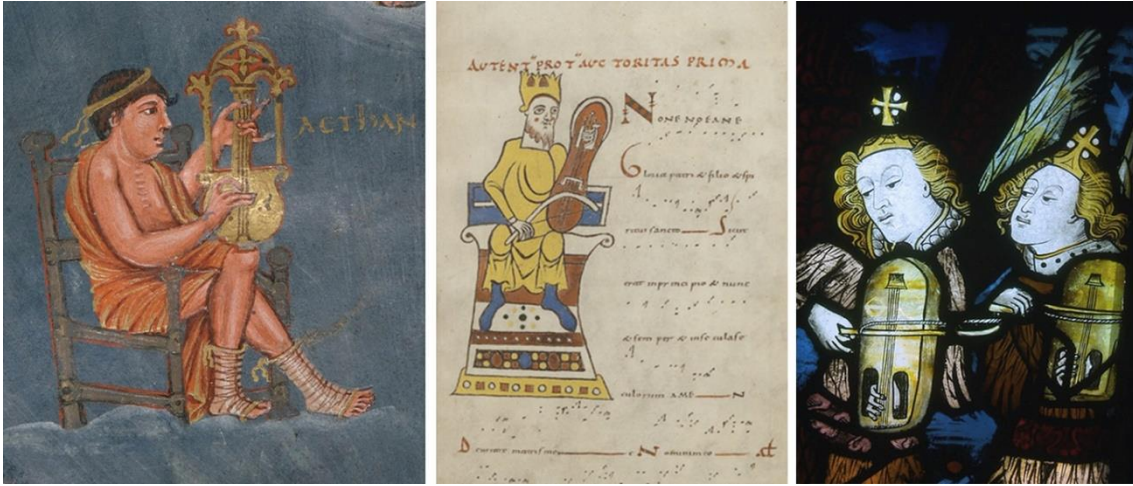 AETHAN
AUTENT PROT AUC TORITAS PRIMA
NONENOEANE
Gloria patri & filio & spi
ritui sancto Sicut
erat in principio & nunc
& sem per & in secula se
culorum AME N